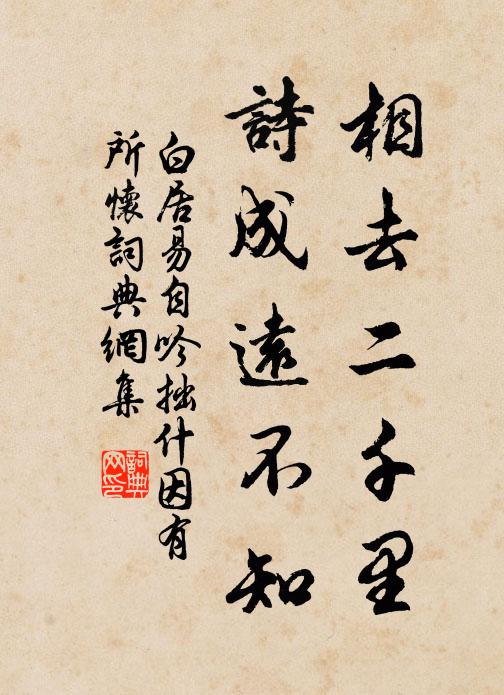 相去二千里
詩成遠不知
白居易自吟拙什因有
所懷詞典網集
詞典
网印